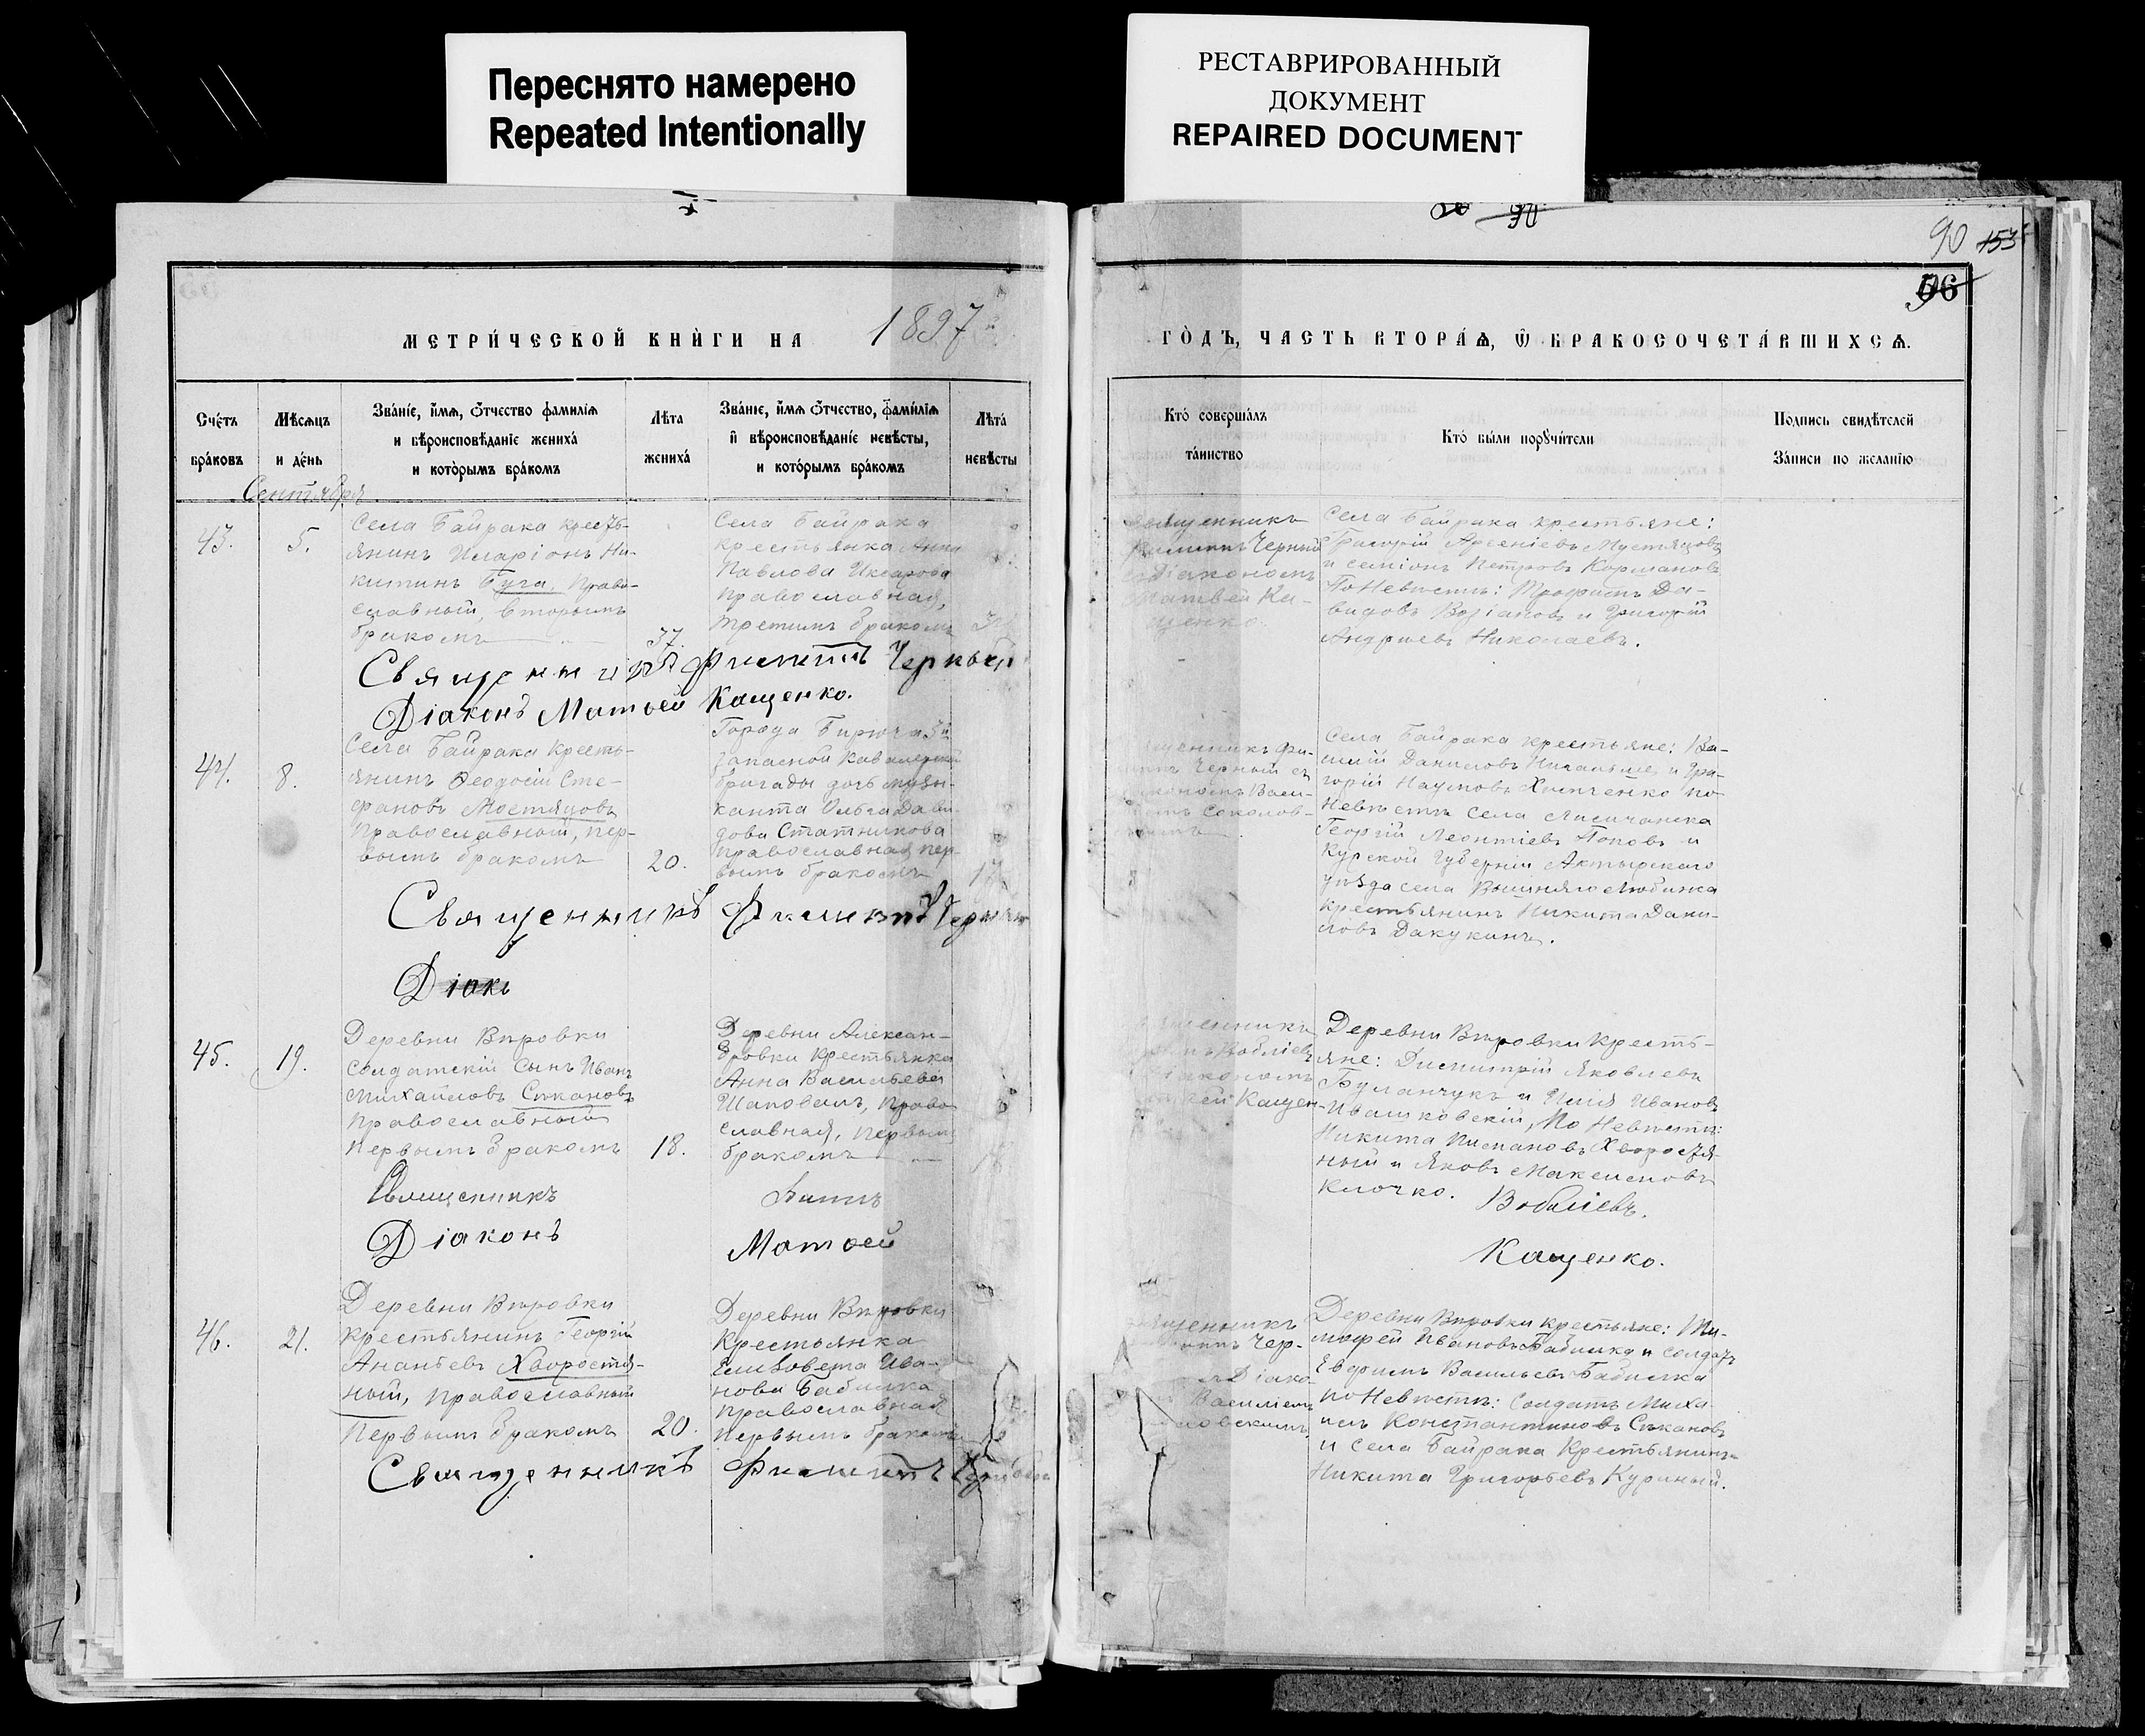 Переснято намерено
Repeated Intentionally
РЕСТАВРИРОВАННЫЙ
ДОКУМЕНТ
REPAIRED DOCUMENT
90 153
56
МЕТРИ́ЧЕСКОЙ КНИ́ГИ НА 1897
ГО́ДЪ, ЧАСТЬ ВТОРА́Ѧ, Ѿ БРАКОСОЧЕТА́ВШИХСѦ.
Сче́тъ
бра́ковъ
Мѣ́сѧцъ
и де́нь
Зва́нїе, и҆́мѧ, ѻ҆́тчество фамилїѧ
и вѣроисповѣ́данїе жениха́
и кото́рымъ бра́комъ
Лѣта
жениха́
Зва́нїе, и҆́мѧ ѻ҆́тчество, фами́лїѧ
и҆ вѣроисповѣ́данїе невѣ́сты,
и кото́рымъ бра́комъ
Лѣта́
невѣ́сты
Кто́ соверша́лъ
та́инство
Кто́ бы́ли порꙋчи́тели
Подпись свидѣ́телей
За́писи по жела́нїю
Сентября
43.
5.
Села Байрака кресть-
янинъ Иларіонъ Ни-
китинъ Буга, Право-
славный, вторымъ
бракомъ
37.
Села Байрака
крестьянка Анна
Павлова
Православная,
третимъ бракомъ
Священникъ
Филиппъ Черный
съ Діакономъ
Матвей Ка-
щенко.
Села Байрака крестьяне:
Григорій Арсеніевъ Мустяцовъ
и Семіонъ Петровъ Кормановъ
По Невѣстѣ: Трофимъ Да-
видовъ Возіановъ и Григорій
Андріевъ Николаевъ.
Священникъ Филиппъ Черный
Діаконъ Матвей Кащенко.
44.
8.
Села Байрака кресть-
янинъ Феодосій Сте-
фановъ Мостяцовъ
Православный, пер-
вымъ бракомъ
20.
Города Бирюча 5й
запасной Кавалерій
бригады дочь музы-
канта Ольга Дави-
дова Статникова
Православная пер-
вымъ бракомъ
17
Черный съ
Васи-
Соколов-
Села Байрака крестьяне: Ва-
силій Даниловъ и Гри-
горій Наумовъ Химченко по
Невѣстѣ села Лисичанска
Георгій Леонтіевъ Поповъ и
Курской Губерніи Ахтырскаго
уѣзда села
крестьянинъ Никита Дани-
ловъ Дакукинъ.
Священникъ Филиппъ Черный
Діакъ
45.
19.
Деревни Вѣровки
Солдатскій сынъ Иванъ
Михайловъ Сѣкановъ
Православный
Первымъ бракомъ
18.
Деревни Алексан-
дровки Крестьянка
Анна Васильева
Шаповалъ, Право
славная, первымъ
бракомъ
Кащен-
Деревни Вѣровки Кресть-
яне: Димитрій Яковлевъ
Буланчукъ и Илія Ивановъ
Ивашковскій, По Невѣстѣ:
Никита Хворостя-
ный и Яковъ Максимовъ
Клочко.
Священникъ
Воблiевъ.
Діаконъ Матвей Кащенко.
46.
21.
Деревни Вѣровки
Крестьянинъ Георгій
Ананьевъ Хворостя-
ный, Православный
Первымъ бракомъ
20.
Деревни Вѣровки
Крестьянка
Елизовета Ива-
нова Бабичка
Православная
Первымъ бракомъ
Чер-
Діако
Василіемъ
Деревни Вѣровки крестьяне: Ти-
мофей Ивановъ и солдатъ
Евфимъ Васильевъ
по Невѣстѣ: Солдатъ Миха-
илъ Константиновъ Сѣкановъ
и Села Байрака Крестьянинъ
Никита Григорьевъ Куриный.
Священникъ Филиппъ Черный